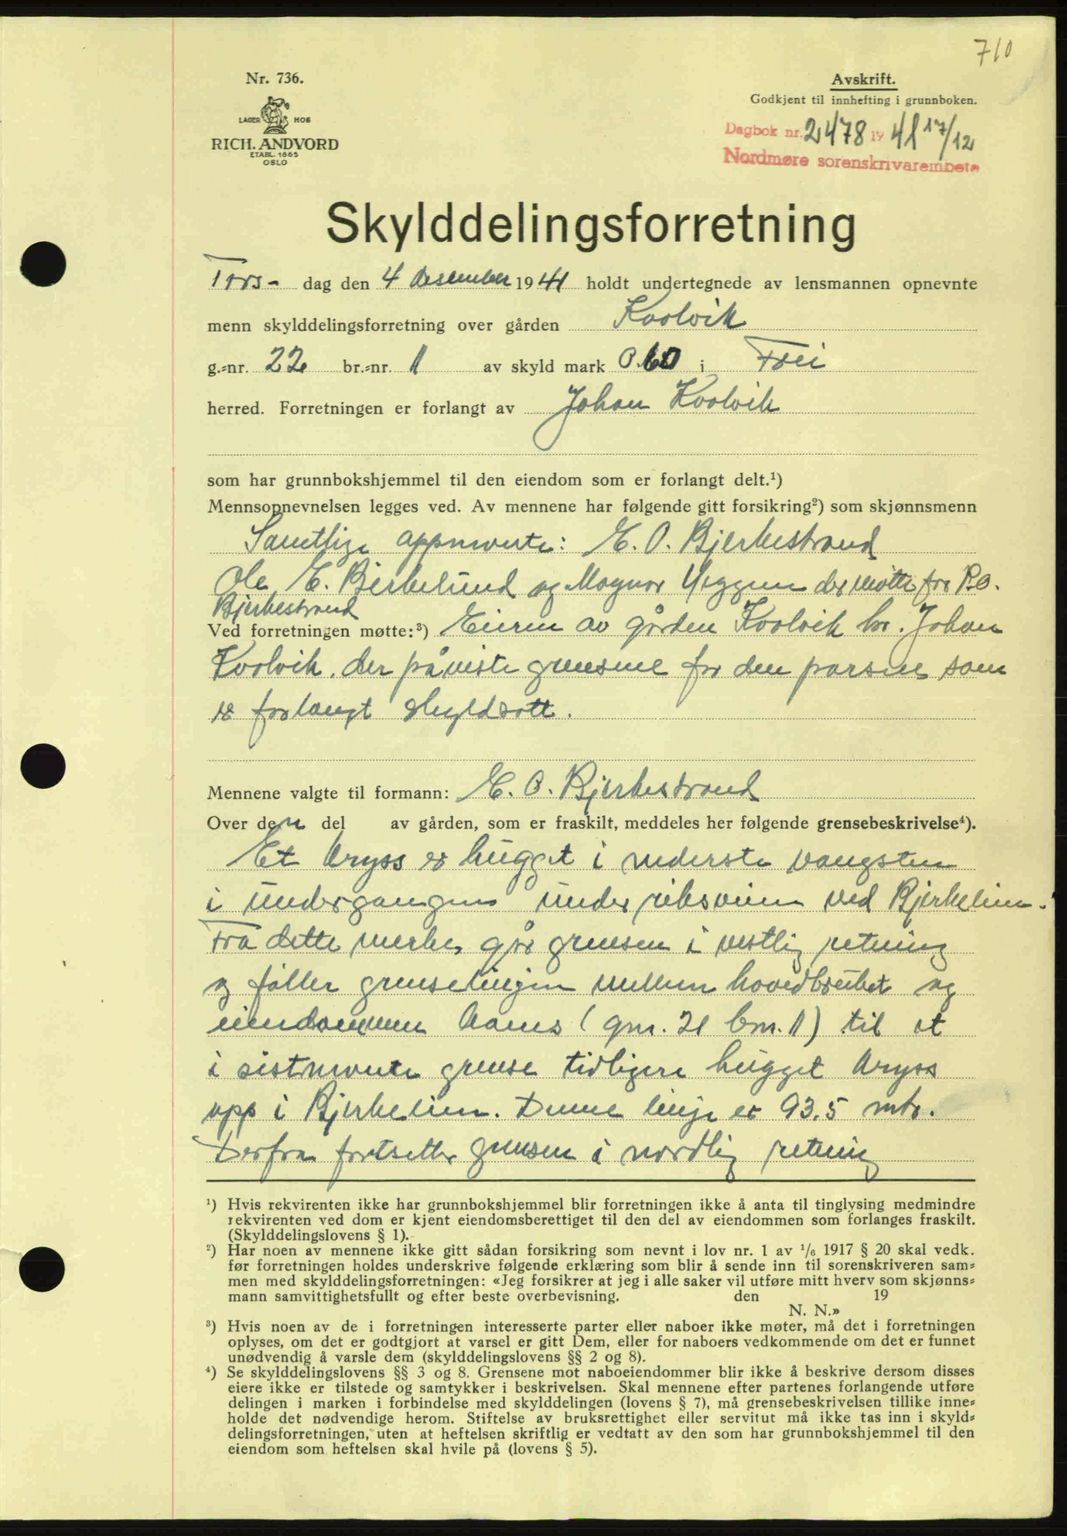 710
Nr. 736.
LAGER HOS
RICH. ANDVORD
ETABL. 1865
OSLO
Avskrift.
Godkjent til innhefting i grunnboken.
Dagbok nr. 2478 19 41 17/12
Nordmøre sorenskrivarembete
Skylddelingsforretning
Tors- dag den 4 desember 1941 holdt undertegnede av lensmannen opnevnte
menn skylddelingsforretning over gården Kvalvik
g.=nr. 22 br.=nr. 1 av skyld mark 0.60 i Frei
herred. Forretningen er forlangt av Johan Kvalvik
som har grunnbokshjemmel til den eiendom som er forlangt delt.¹)
Mennsopnevnelsen legges ved. Av mennene har følgende gitt forsikring²) som skjønnsmenn
Samtlige oppnevnte: E. O. Bjerkestrand
Ole E. Bjerkelund og Magnar der møtte for
Bjerkestrand
Ved forretningen møtte:³) Eieren av gården Kvalvik hr. Johan
Kvalvik, der påviste grensene for den parsell som
er forlangt skyldsatt.
Mennene valgte til formann: E. O. Bjerkestrand
Over den del av gården, som er fraskilt, meddeles her følgende grensebeskrivelse⁴).
Et kryss er hugget i nederste vangsten
i undergangen under riksveien ved Bjerkelien.
Fra dette merke går grensen i vestlig retning
og føller grenselinjen mellem hovedbruket og
eiendommen (gnr. 21 bnr. 1) til et
i sistnevnte grense tidligere hugget kryss
opp i Bjerkelien. Denne linje er 93.5 mtr.
Derfra fortsetter grensen i nordlig retning
¹) Hvis rekvirenten ikke har grunnbokshjemmel blir forretningen ikke å anta til tinglysing medmindre
rekvirenten ved dom er kjent eiendomsberettiget til den del av eiendommen som forlanges fraskilt.
(Skylddelingslovens § 1).
²) Har noen av mennene ikke gitt sådan forsikring som nevnt i lov nr. 1 av 1/6 1917 § 20 skal vedk.
før forretningen holdes underskrive følgende erklæring som blir å sende inn til sorenskriveren sam=
men med skylddelingsforretningen: «Jeg forsikrer at jeg i alle saker vil utføre mitt hverv som skjønns=
mann samvittighetsfullt og efter beste overbevisning. den 19
N. N.»
³) Hvis noen av de i forretningen interesserte parter eller naboer ikke møter, må det i forretningen
oplyses, om det er godtgjort at varsel er gitt Dem, eller for naboers vedkommende om det er funnet
unødvendig å varsle dem (skylddelingslovens §§ 2 og 8).
⁴) Se skylddelingslovens §§ 3 og 8. Grensene mot naboeiendommer blir ikke å beskrive dersom disses
eiere ikke er tilstede og samtykker i beskrivelsen. Skal mennene efter partenes forlangende utføre
delingen i marken i forbindelse med skylddelingen (lovens § 7), må grensebeskrivelsen tillike inne=
holde det nødvendige herom. Stiftelse av bruksrettighet eller servitut må ikke tas inn i skyld=
delingsforretningen, uten at heftelsen skriftlig er vedtatt av den som har grunnbokshjemmel til den
eiendom som heftelsen skal hvile på (lovens § 5).